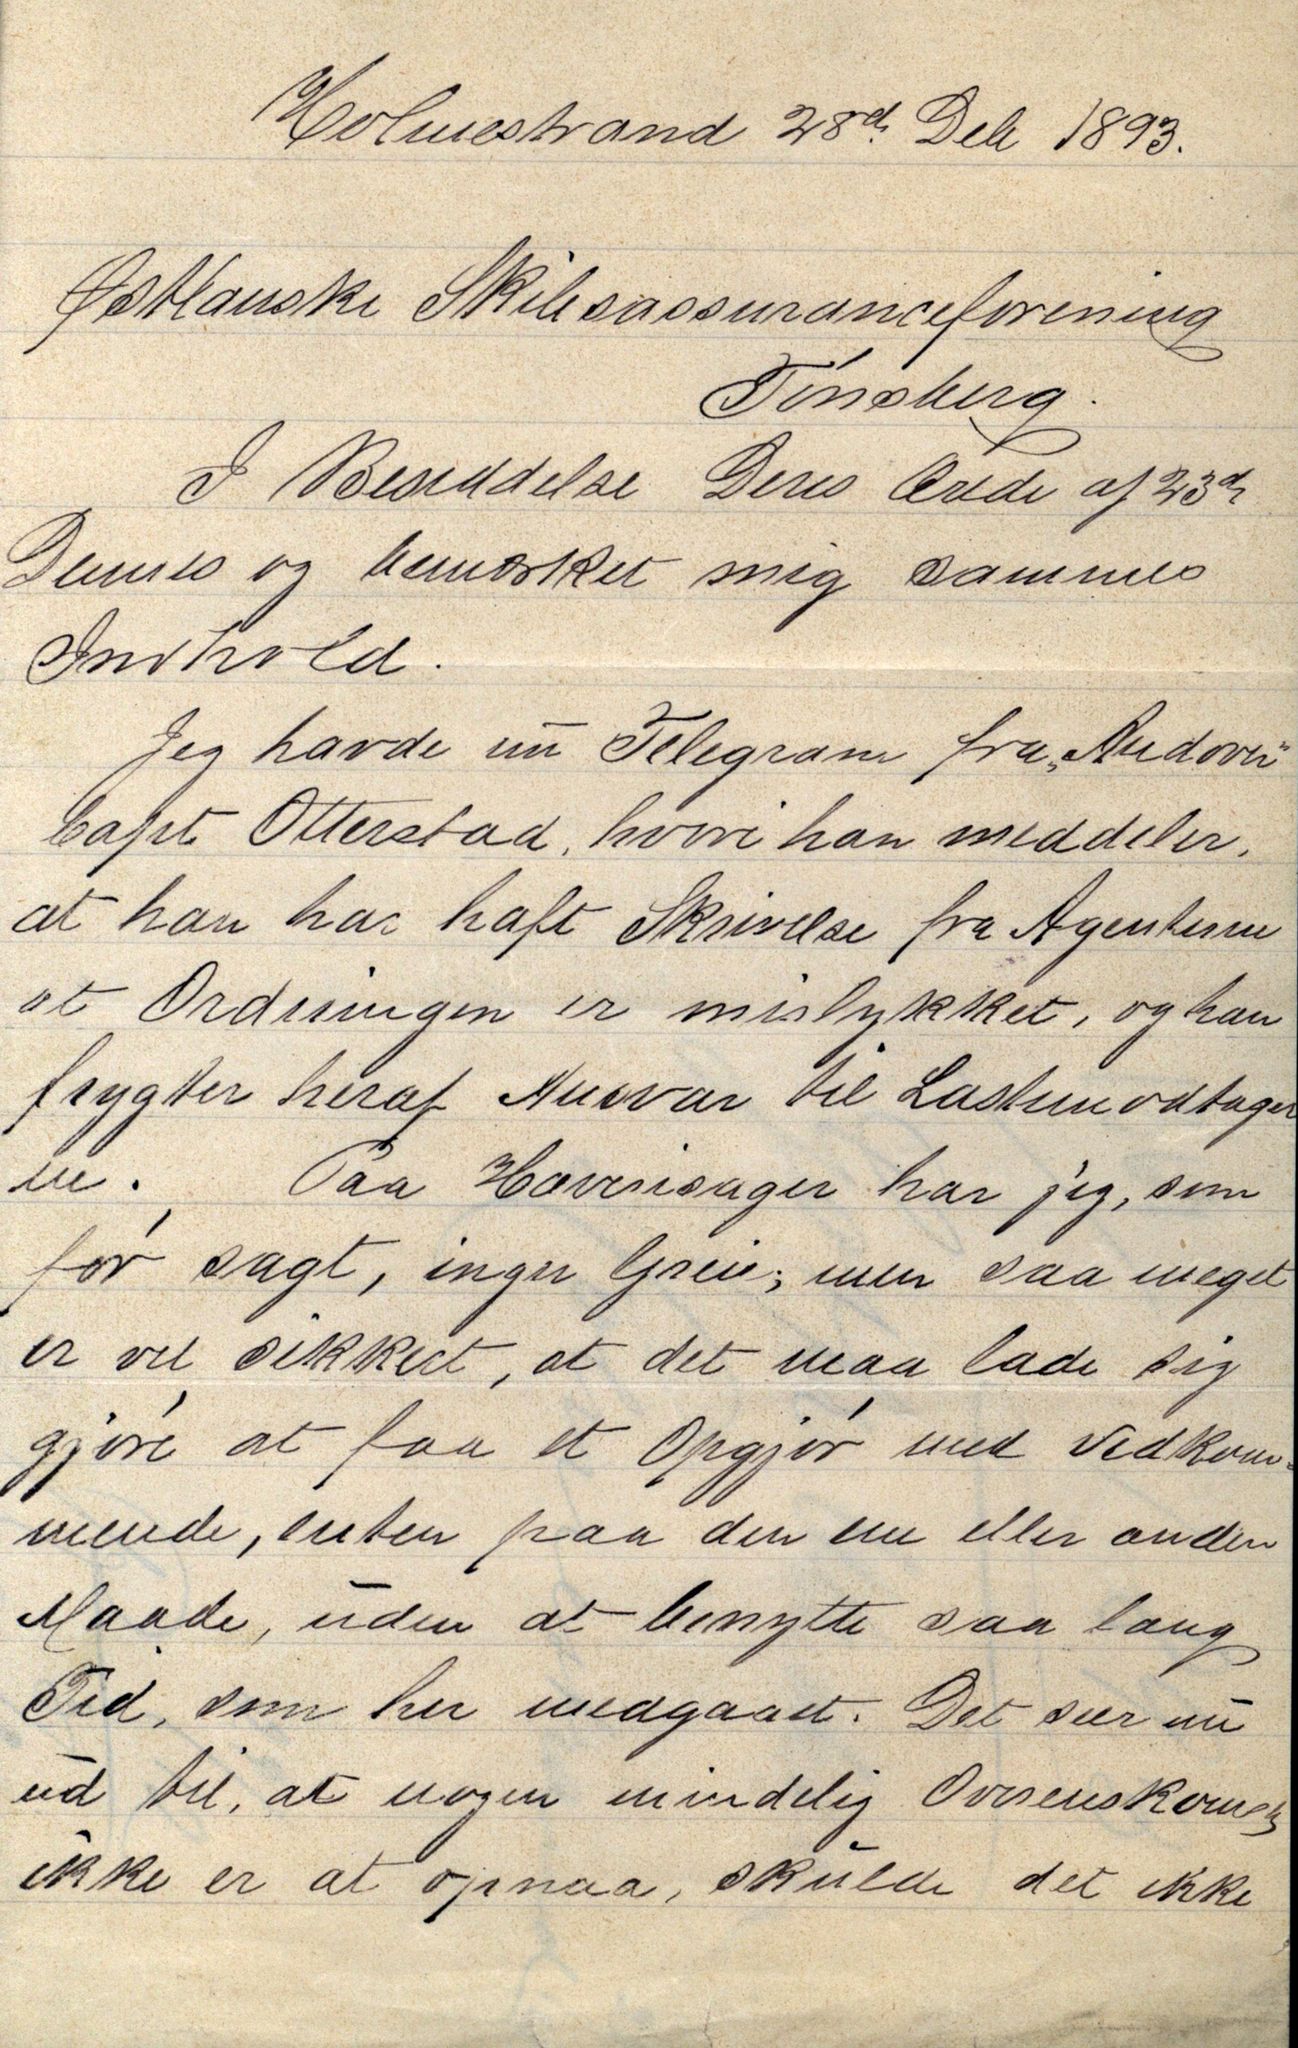 Holmestrand 28de Dek 1893.
Østlanske Skibsassuranceforening
Tönsberg.
I Besiddelse Deres Ærede af 23de
Dennes og bemærket mig sammes
Indhold.
Jeg havde nu Telegram fra „Andover“
Capt Otterstad, hvori han meddeler,
at han har haft Skrivelse fra Agenterne
at Ordningen er mislykket, og han
frygter heraf Ansvar til Lastemodtager
ne. Paa Havarisager har jeg, som
før sagt, ingen Greie; men saa meget
er vel sikkert, at det maa lade sig
gjøre at faa et Opgjør med Vedkom-
mende, enten paa den ene eller anden
Maade, uden at benytte saa lang
Tid, som her medgaaet. Det seer nu
ud til, at nogen mindelig Overenskomst
ikke er at opnaa, skulde det ikke